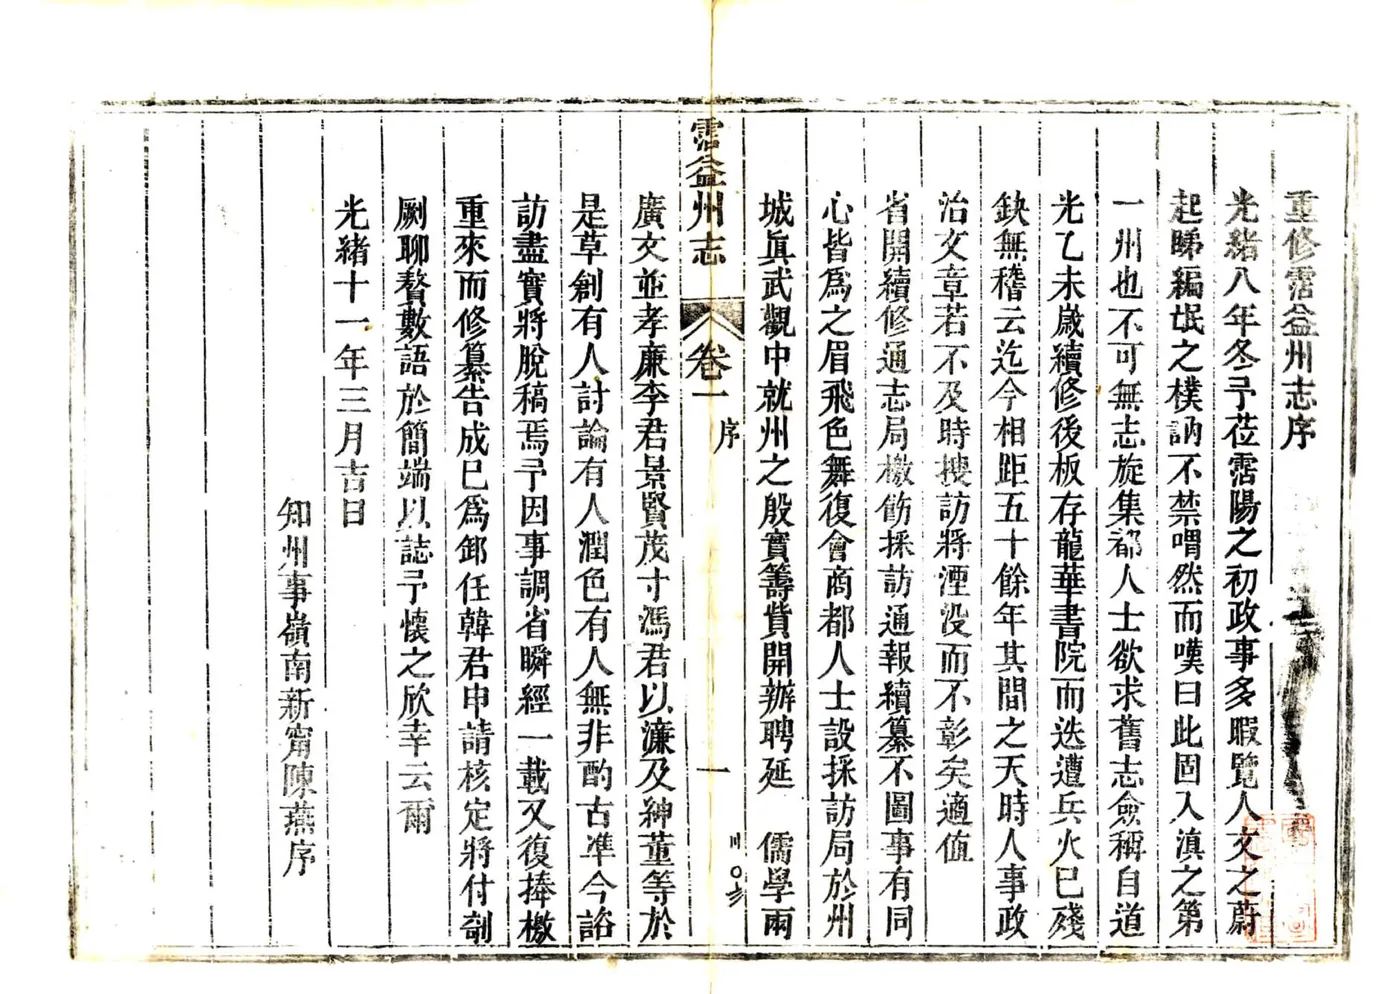 重修霑益州志序
光緒八年冬予莅霑陽之初政事多暇覽人文之蔚
起睇編氓之樸訥不禁喟然而嘆曰此固入滇之第
一州也不可無志旋集都人士欲求舊志僉稱自道
光乙未歲續修後板存龍華書院而迭遭兵火已殘
缺無稽云迄今相距五十餘年其間之天時人事政
治文章若不及時搜訪將湮没而不彰矣適值
省開續修通志局檄飭採訪通報續纂不圖事有同
心皆爲之眉飛色舞復會商都人士設採訪局於州
城眞武觀中就州之殷實籌貲開辦聘延 儒學兩
霑益州志 卷一 序 一
廣文並孝廉李君景賢茂才馮君以濂及紳董等於
是草創有人討論有人潤色有人無非酌古準今諮
訪盡實將脫稿焉予因事調省瞬經一載又復捧檄
重來而修纂告成已爲卸任韓君申請核定將付剞
劂聊贅數語於簡端以誌予懷之欣幸云爾
光緒十一年三月吉日
知州事嶺南新甯陳燕序